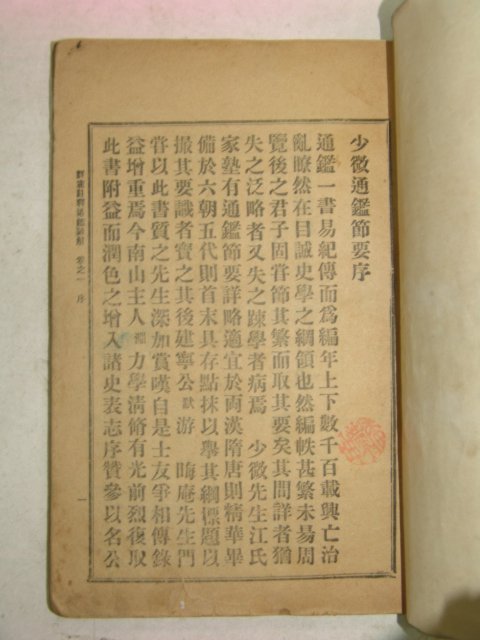 少微通鑑節要序
通鑑一書易紀傳而爲編年上下數千百載興亡治
亂瞭然在目誠史學之綱領也然編帙甚繁未易周
覽後之君子固甞節其繁而取其要矣其間詳者猶
失之泛略者又失之疎學者病焉 少微先生江氏
家塾有通鑑節要詳略適宜於兩漢隋唐則精華畢
備於六朝五代則首末具存點抹以擧其綱標題以
撮其要識者寶之其後建寧公默游 晦庵先生門
甞以此書質之先生深加賞嘆自是士友爭相傳錄
益增重焉今南山主人淵力學淸脩有光前烈復取
此書附益而潤色之增入諸史表志序贊參以名公
卷之一 序
一